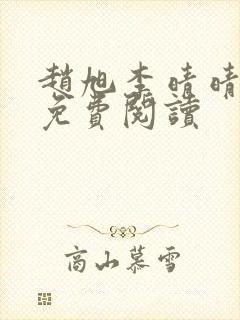 趙旭李晴晴
免費閱讀
高山慕雪